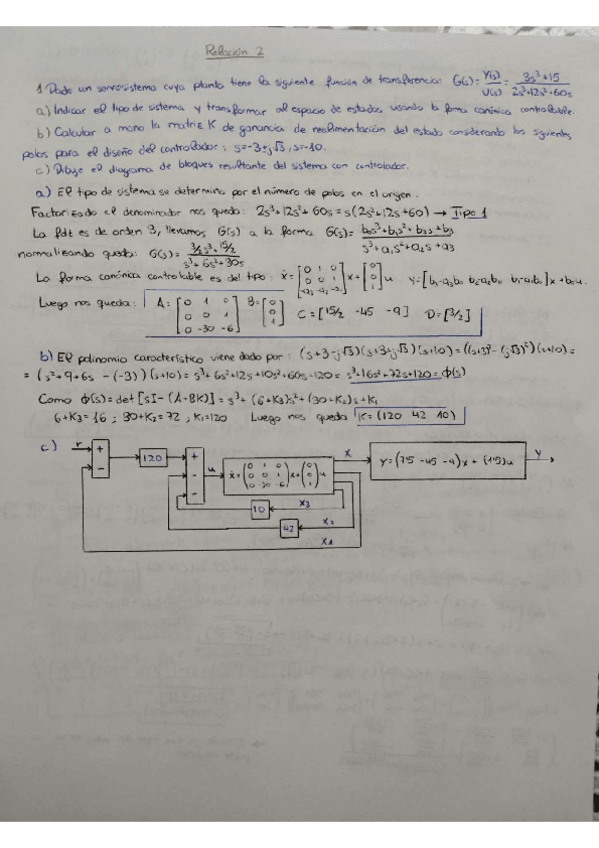 Relación 2
1 Dado un servosistema cuya planta tiene la siguiente función de transferencia: G(s) = Y(s)/U(s) = 3s³+15 / 2s³+12s²+60s
a) Indicar el tipo de sistema y transformar al espacio de estados, usando la forma canónica controlable.
b) Calcular a mano la matriz K de ganancia de realimentación del estado considerando los siguientes
polos para el diseño del controlador: s=-3±j√3, s=-10.
c) Dibuje el diagrama de bloques resultante del sistema con controlador.
a) El tipo de sistema se determina por el número de polos en el origen.
Factorizado el denominador nos queda: 2s³+12s²+60s = s(2s²+12s+60) → Tipo 1
La fdt es de orden 3, llevamos G(s) a la forma G(s) = b₀s³+b₁s²+b₂s+b₃ / s³+a₁s²+a₂s+a₃
normalizando queda: G(s) = 3/2 s³+15/2 / s³+6s²+30s
La forma canónica controlable es del tipo: ẋ = [0 1 0; 0 0 1; -a₃ -a₂ -a₁] x + [0; 0; 1] u y = [b₃-a₃b₀ b₂-a₂b₀ b₁-a₁b₀] x + b₀u.
Luego nos queda: A = [0 1 0; 0 0 1; 0 -30 -6] B = [0; 0; 1] C = [15/2 -45 -9] D = [3/2]
b) El polinomio característico viene dado por: (s+3-j√3)(s+3+j√3)(s+10) = ((s+3)²-(j√3)²)(s+10) =
= (s²+9+6s-(-3))(s+10) = s³+6s²+12s+10s²+60s+120 = s³+16s²+72s+120 = ϕ(s)
Como ϕ(s) = det[sI-(A-BK)] = s³+(6+K₃)s²+(30+K₂)s+K₁
6+K₃=16; 30+K₂=72, K₁=120 Luego nos queda K=(120 42 10)
c) r + - 120 + - - u ẋ = (0 1 0; 0 0 1; 0 -30 -6) x + (0; 0; 1) u x y = (7'5 -45 -9) x + (1'5) u y
10 x₃
42 x₂
x₁